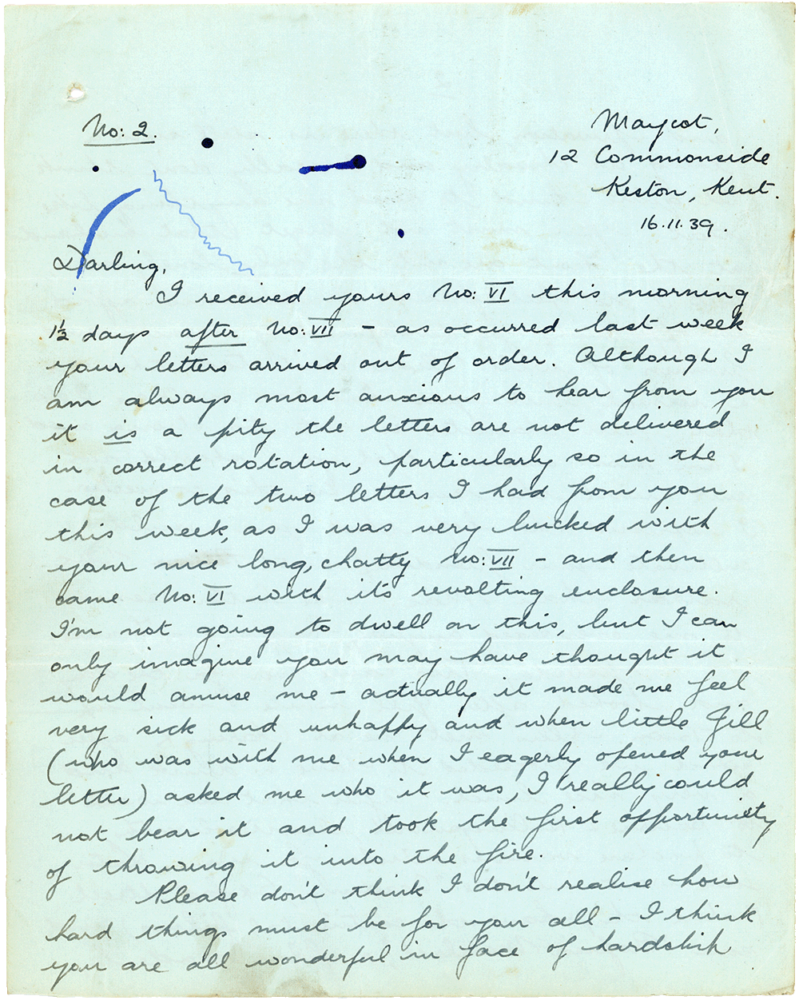 No: 2.
Maycot,
12 Commonside
Keston, Kent.
16.11.39.
Darling,
I received yours No: VI this morning
1½ days after No: VII – as occurred last week
your letters arrived out of order. Although I
am always most anxious to hear from you
it is a pity the letters are not delivered
in correct rotation, particularly so in the
case of the two letters I had from you
this week, as I was very bucked with
your nice long, chatty No: VII – and then
came No: VI with it's revolting enclosure.
I'm not going to dwell on this, but I can
only imagine you may have thought it
would amuse me – actually it made me feel
very sick and unhappy and when little Jill
(who was with me when I eagerly opened your
letter) asked me who it was, I really could
not bear it and took the first opportunity
of throwing it into the fire.
Please don't think I don't realise how
hard things must be for you all – I think
you are all wonderful in face of hardship